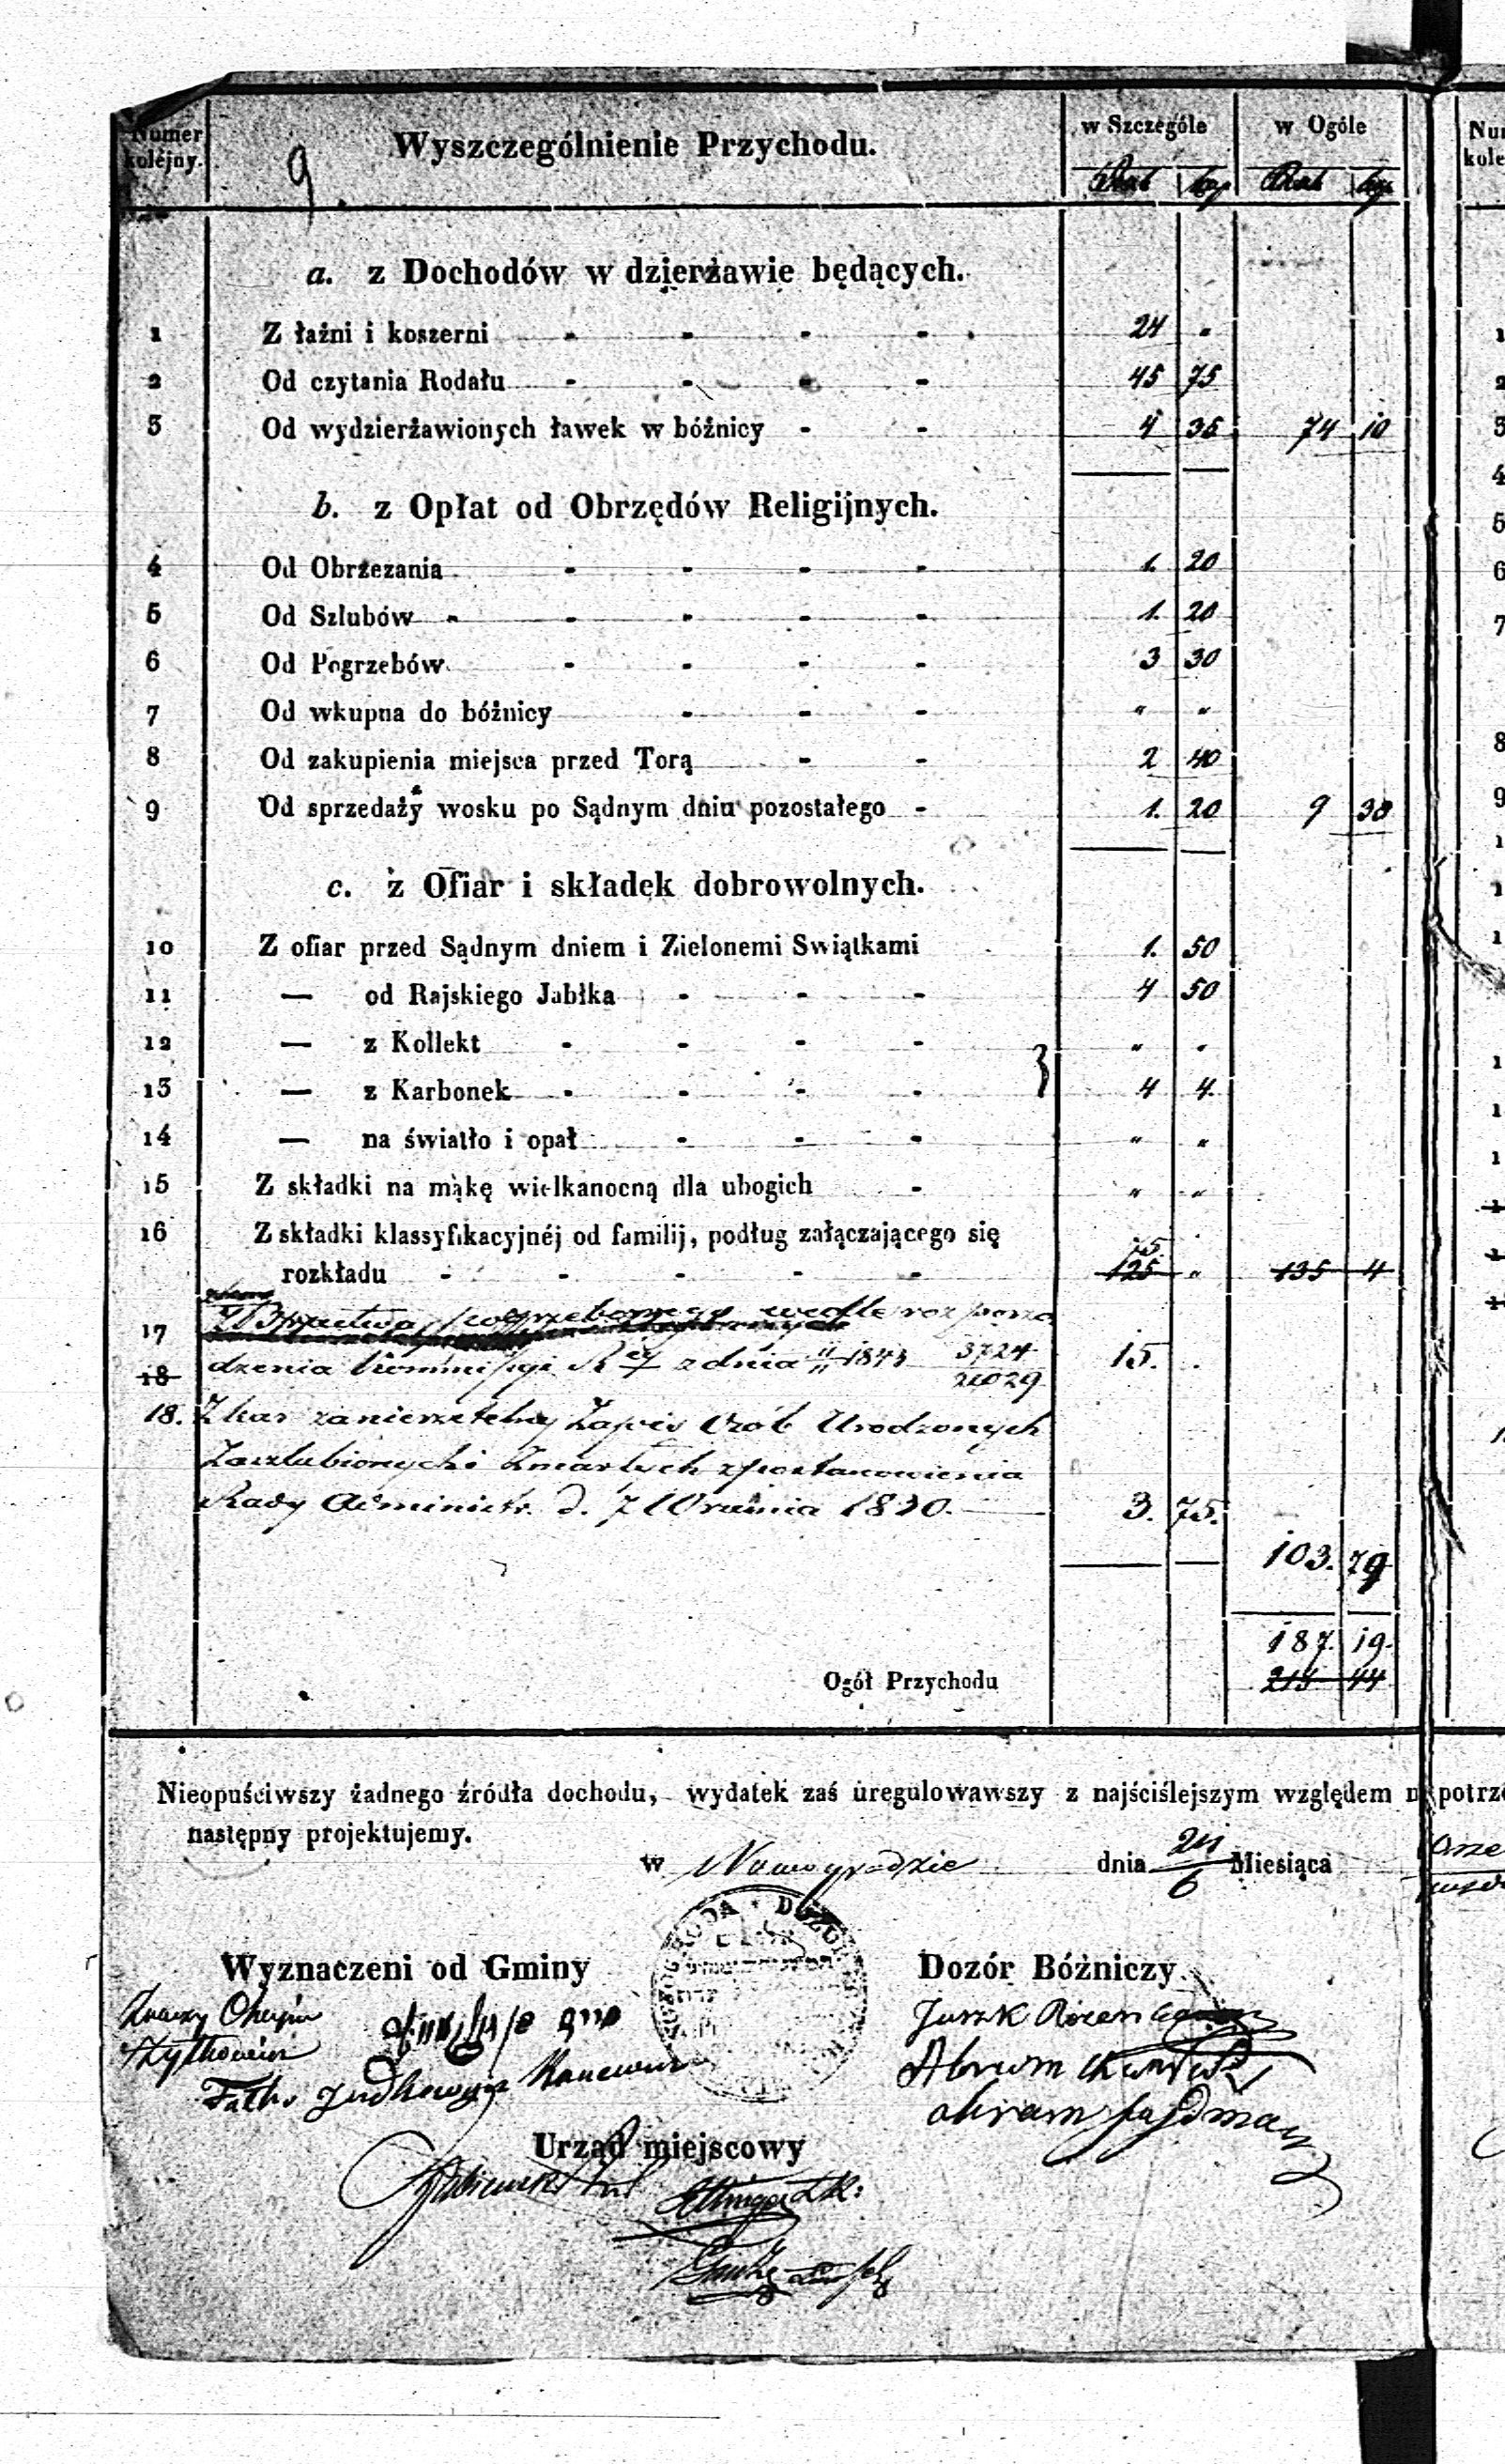 Numer kolejny.
9
Wyszczególnienie Przychodu.
w Szczególe
w Ogóle
Rub kop Rub kop
a. z Dochodów w dzierżawie będących.
1 Z łaźni i koszerni - - - - 24 "
2 Od czytania Rodału - - - - 45 75
3 Od wydzierżawionych ławek w bóżnicy - - 4 35 74 10
b. z Opłat od Obrzędów Religijnych.
4 Od Obrzezania - - - - 1. 20
5 Od Szlubów - - - - - 1. 20
6 Od Pogrzebów - - - - 3 30
7 Od wkupna do bóżnicy - - - " "
8 Od zakupienia miejsca przed Torą - - 2 40
9 Od sprzedaży wosku po Sądnym dniu pozostałego - 1. 20 9 30
c. z Ofiar i składek dobrowolnych.
10 Z ofiar przed Sądnym dniem i Zielonemi Swiątkami 1. 50
11 — od Rajskiego Jabłka - - - 4 50
12 — z Kollekt - - - - " "
13 — z Karbonek - - - - 4 4.
14 — na światło i opał - - - " "
15 Z składki na mąkę wielkanocną dla ubogich - " "
16 Z składki klassyfikacyjnéj od familij, podług załączającego się
75.
rozkładu - - - - - 125 " 135 4
17 Z Bractwa pogrzebowego wedle rozporzą
18 dzenia Kommissyi z dnia 1843 3724 15. "
24029
18. Z kar za nierzetelny Zapis Osób Urodzonych
Zaszlubionych i Zmarłych z postanowienia
Rady Administr. d. 7 Września 1830. — 3. 75.
103. 79
187. 19.
Ogół Przychodu 215 44
Nieopuściwszy żadnego źródła dochodu, wydatek zaś uregulowawszy z najściślejszym względem n potrze
następny projektujemy.
w Nowogrodzie dnia 24/6 Miesiąca
Wyznaczeni od Gminy
Dozór Bóżniczy
Juszk Rozen
Abram
abram
Judkowicz
Urząd miejscowy
Num
kole